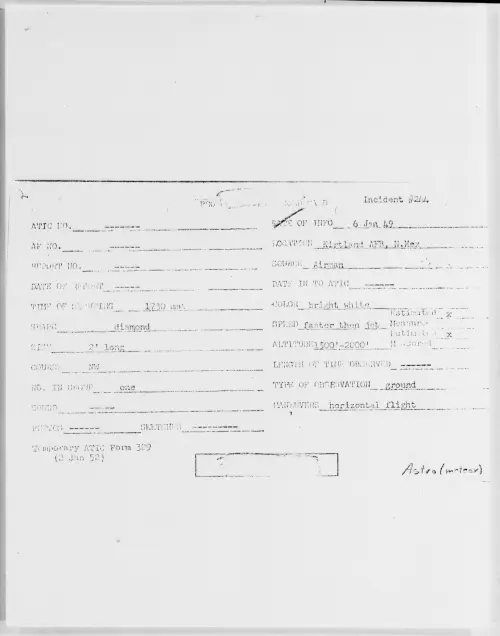 2
Incident #244
ATIC NO. -------
DATE OF INFO 6 Jan 49
AF NO. ------
LOCATION Kirtland AFB, N.Mex
REPORT NO. ------
SOURCE Airman
DATE OF REPORT ------
DATE IN TO ATIC ------
TIME OF SIGHTING 1730
COLOR bright white
SHAPE diamond
SPEED faster than jet Estimated x
SIZE 2' long
ALTITUDE 1500'-2000' x
COURSE NW
LENGTH OF TIME OBSERVED ------
NO. IN GROUP one
TYPE OF OBSERVATION ground
SOUND -----
MANEUVERS horizontal flight
PHOTOS ------ SKETCHES ---------
Temporary ATIC Form 329
(2 Jan 52)
Astro (meteor)